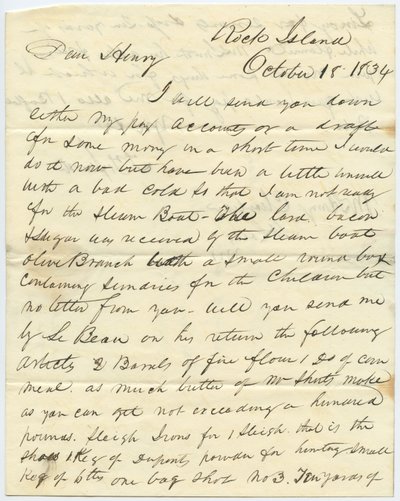 Rock Island
October 18 - 1834
Dear Henry
I will send you down
either my pay accounts or a draft
for some money in a short time I would
do it now but have been a little unwell
with a bad cold so that I am not ready
for the Steam Boat - The lard, bacon
& sugar was received by the Steam boat
Olive Branch with a small round box
containing sundries for the Children but
no letter from you - will you send me
by Le Beau on his return the following
articles 2 Barrels of fine flour 1 Do of corn
meal. as much butter of Mr Shotts make
as you can get not exceeding a hundred
pounds. Sleigh Irons for 1 Sleigh. that is the
shoes 1 Keg of Duponts powder for hunting small
Keg of 6 lbs one bag shot No 3. Ten yards of